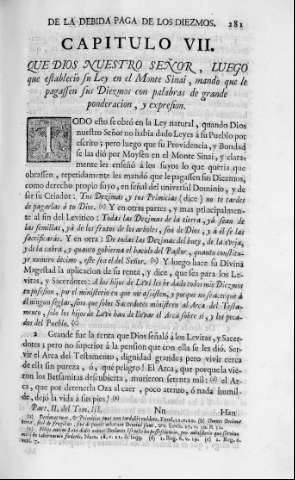 DE LA DEBIDA PAGA DE LOS DIEZMOS. 281
CAPITULO VII.
QUE DIOS NUESTRO SEÑOR, LUEGO
que estableciò su Ley en el Monte Sinai, mandò que le
pagassen sus Diezmos con palabras de grande
ponderacion, y expresion.
TODO esto se obrò en la Ley natural, quando Dios
nuestro Señor no habia dado Leyes à su Pueblo por
escrito; pero luego que su Providencia, y Bondad
se las diò por Moysen en el Monte Sinai, y clara-
mente les enseñò à los suyos lo que queria que
obrassen, repetidamente les mandò que le pagassen sus Diezmos,
como derecho proprio suyo, en señal del universal Dominio, y de
ser su Criador: Tus Dezimas, y tus Primicias (dice) no te tardes
de pagarlas à tu Dios. Y en otra parte, y mas principalmen-
te al fin del Levitico: Todas las Dezimas de la tierra, yà sean de
las semillas, yà de los frutos de los arboles, son de Dios, y à èl se las
sacrificaràs. Y en otra: De todas las Dezimas del buey, de la oveja,
y de la cabra, y quanto gobierna el baculo del Pastor, quanto
numero dezimo, este sea el del Señor. Y luego hace su Divina
Magestad la aplicacion de su renta, y dice, que sea para los Le-
vitas, y Sacerdotes: A los hijos de Levi he dado todos mis Diezmos
en possession, por el ministerio en que me assisten, y porque no se acerque à
ningun seglar, sino que solos Sacerdotes ministren al Arca del Testa-
mento, solo los hijos de Levi han de llevar el Arca sobre sì, y los peca-
dos del Pueblo.
2 Grande fue la renta que Dios señalò à los Levitas, y Sacer-
dotes; pero no superior à la pension que con ella se les diò. Ser-
vir el Arca del Testamento, dignidad grande; pero vivir cerca
de ella sin pureza, ò, què peligro! El Arca, que porque la vie-
ron los Betsamitas descubierta, murieron setenta mil: el Ar-
ca, que por detenerla Oza al caer, poco atento, ò nada humil-
de, dexò la vida à sus pies!
Part. II. del Tom. III. Nn Han